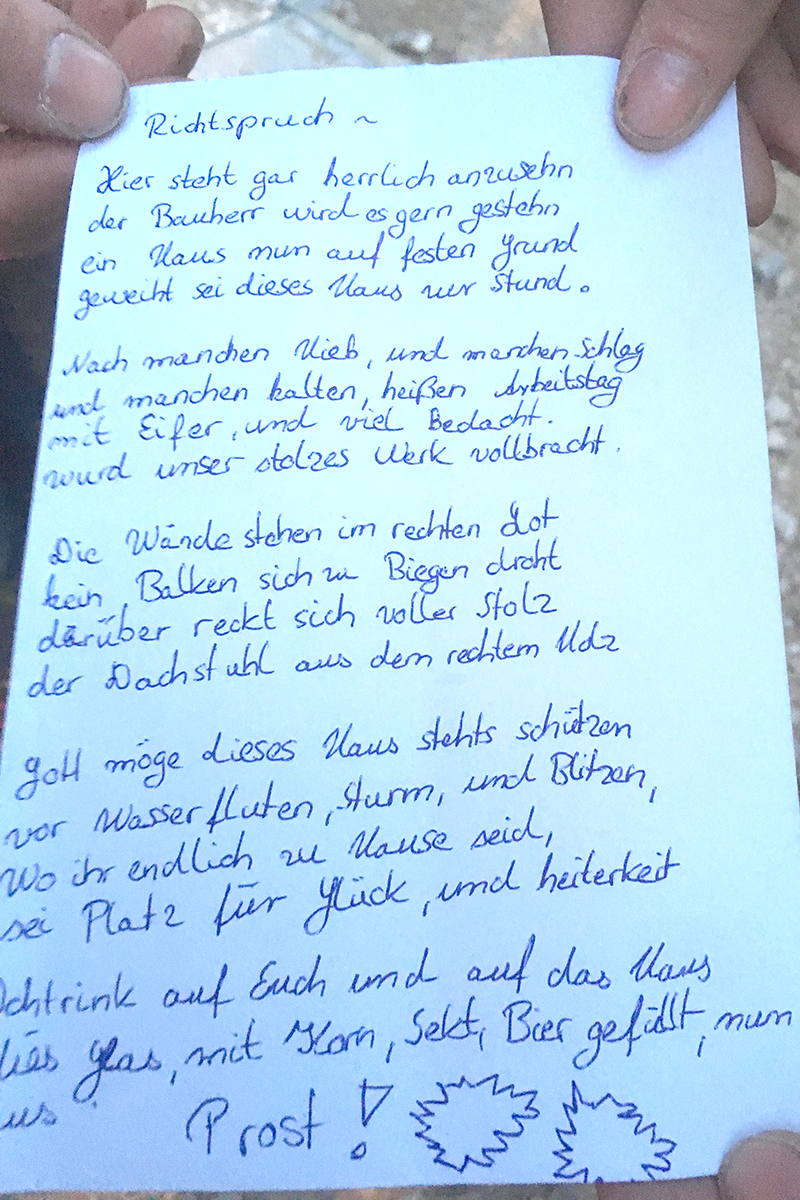 Richtspruch ~
Hier steht gar herrlich anzusehn
der Bauherr wird es gern gestehn
ein Haus nun auf festen Grund
geweiht sei dieses Haus zur Stund.
Nach manchen Hieb, und manchen Schlag
und manchen kalten, heißen Arbeitstag
mit Eifer, und viel Bedacht.
wurd unser stolzes Werk vollbracht.
Die Wände stehen im rechten Lot
kein Balken sich zu Biegen droht
darüber reckt sich voller Stolz
der Dachstuhl aus dem rechtem Holz
Gott möge dieses Haus stehts schützen
vor Wasserfluten, Sturm, und Blitzen,
Wo ihr endlich zu Hause seid,
sei Platz für Glück, und heiterkeit
Ichtrink auf Euch und auf das Haus
dies Glas, mit Korn, Sekt, Bier gefüllt, nun
us
Prost!